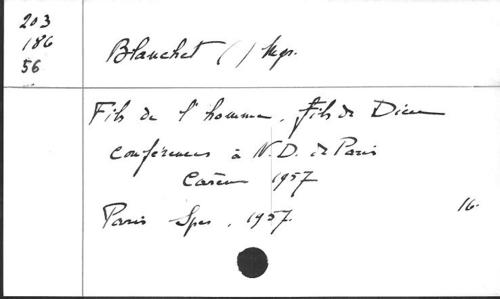 203
186
56
Blanchet ( ) Mgr.
Fils de l'homme, fils de Dieu
Conférences à N.D. de Paris
Carême 1957
Paris Spes, 1957.
16.